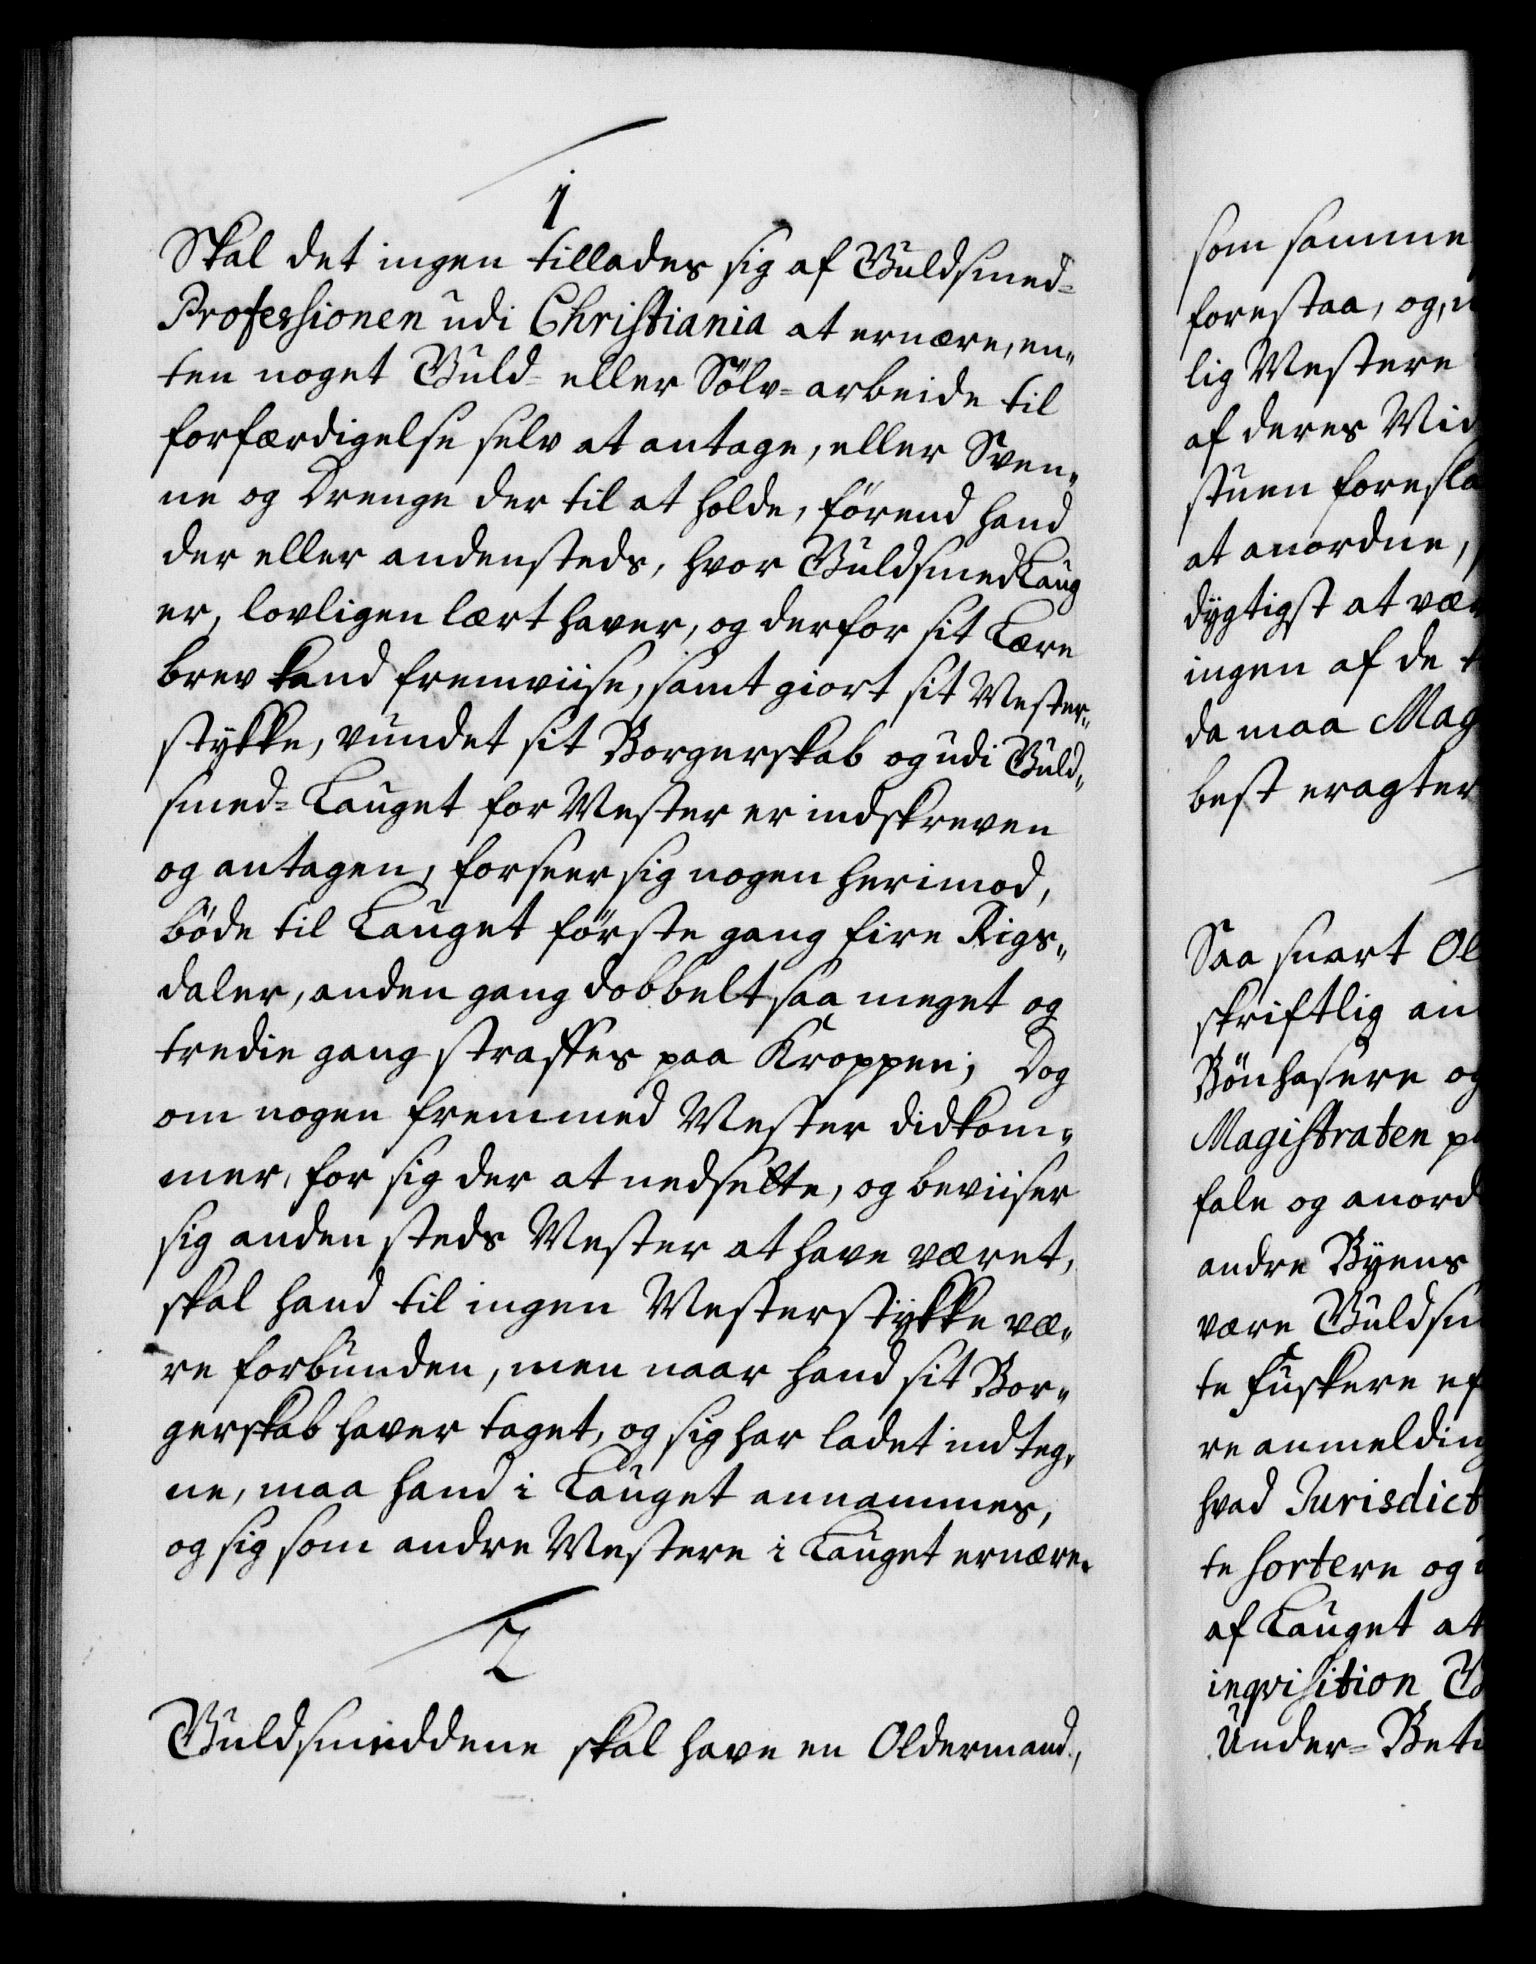 1
Skal det ingen tillades sig af Guldsmed=
Professionen udi Christiania at ernære, en„
ten noget Guld= eller Sölv=arbeide til
forfærdigelse selv at antage, eller Sven„
ne og Drenge der til at holde, förend hand
der eller andensteds, hvor GuldsmedLaug
er, lovligen lært haver, og derfor sit Lære
brev kand fremviise, samt giort sit Mester„
stykke, vundet sit Borgerskab og udi Guld„
smed=Lauget for Mester er indskreven
og antagen, forseer sig nogen herimod,
böde til Lauget förste gang fire Rigs„
daler, anden gang dobbelt saa meget og
tredie gang straffes paa Kroppen; Dog
om nogen fremmed Mester didkom„
mer, for sig der at nedsette, og beviiser
sig anden steds Mester at have været,
skal hand til ingen Mesterstykke væ„
re forbunden, men naar hand sit Bor„
gerskab haver taget, og sig har ladet indteg„
ne, maa hand i Lauget annammes,
og sig som andre Mestere i Lauget ernære.
2
Guldsmeddene skal have en Oldermand,
som samme
forestaa, og,
lig Mestere
af deres Mid
stuen foresla
at anordne,
dygtigst at vær
ingen af de t
da maa Mag
best eragter
Saa snart Ol
skriftlig an
Bönhasere og
Magistraten p
fale og anord
andre Byens
være Guldsm
te fuskere ef
re anmelding
hvad Jurisdict
te sortere og
af Lauget at
inqvisition
Under=Bet